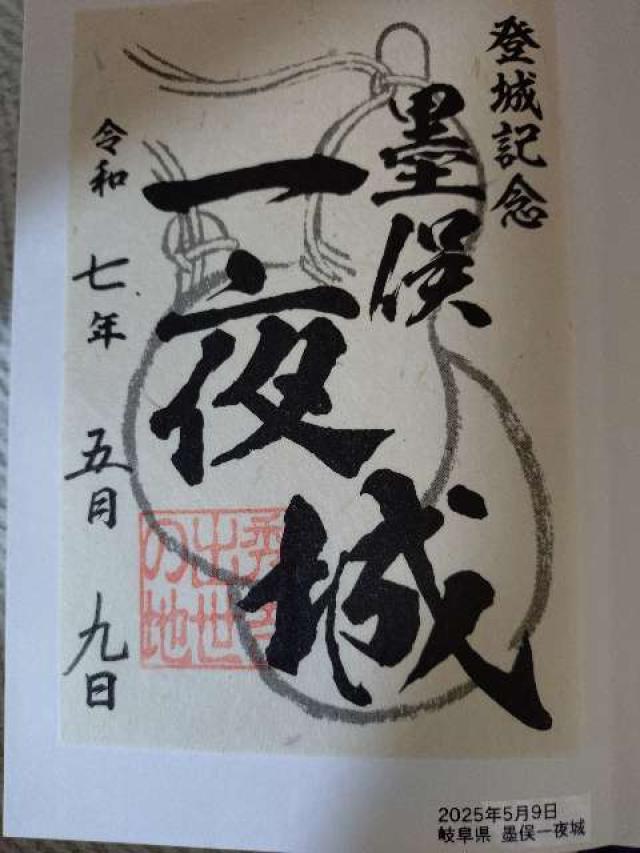 登城記念
墨俣
一夜城
令和 七年 五月 九日
秀吉
出世
の地
2025年5月9日
岐阜県 墨俣一夜城